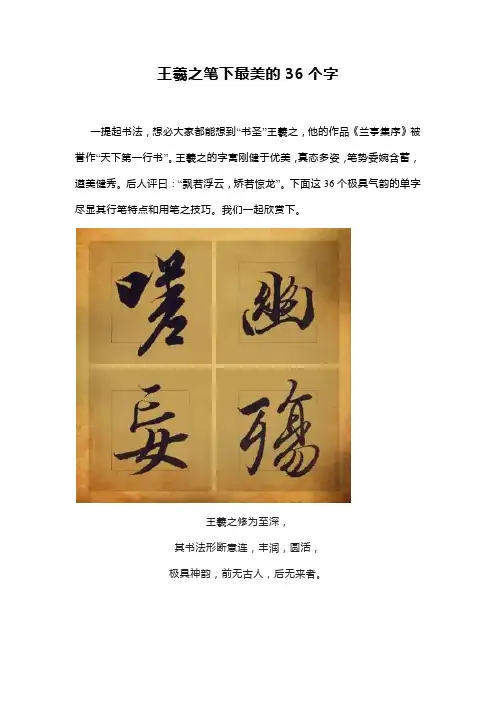 王羲之笔下最美的36个字
一提起书法，想必大家都能想到“书圣”王羲之，他的作品《兰亭集序》被
誉作“天下第一行书”。王羲之的字寓刚健于优美，真态多姿，笔势委婉含蓄，
遒美健秀。后人评曰：“飘若浮云，矫若惊龙”。下面这36个极具气韵的单字
尽显其行笔特点和用笔之技巧。我们一起欣赏下。
嗟 幽
妄 殤
王羲之修为至深，
其书法形断意连，丰润，圆活，
极具神韵，前无古人，后无来者。